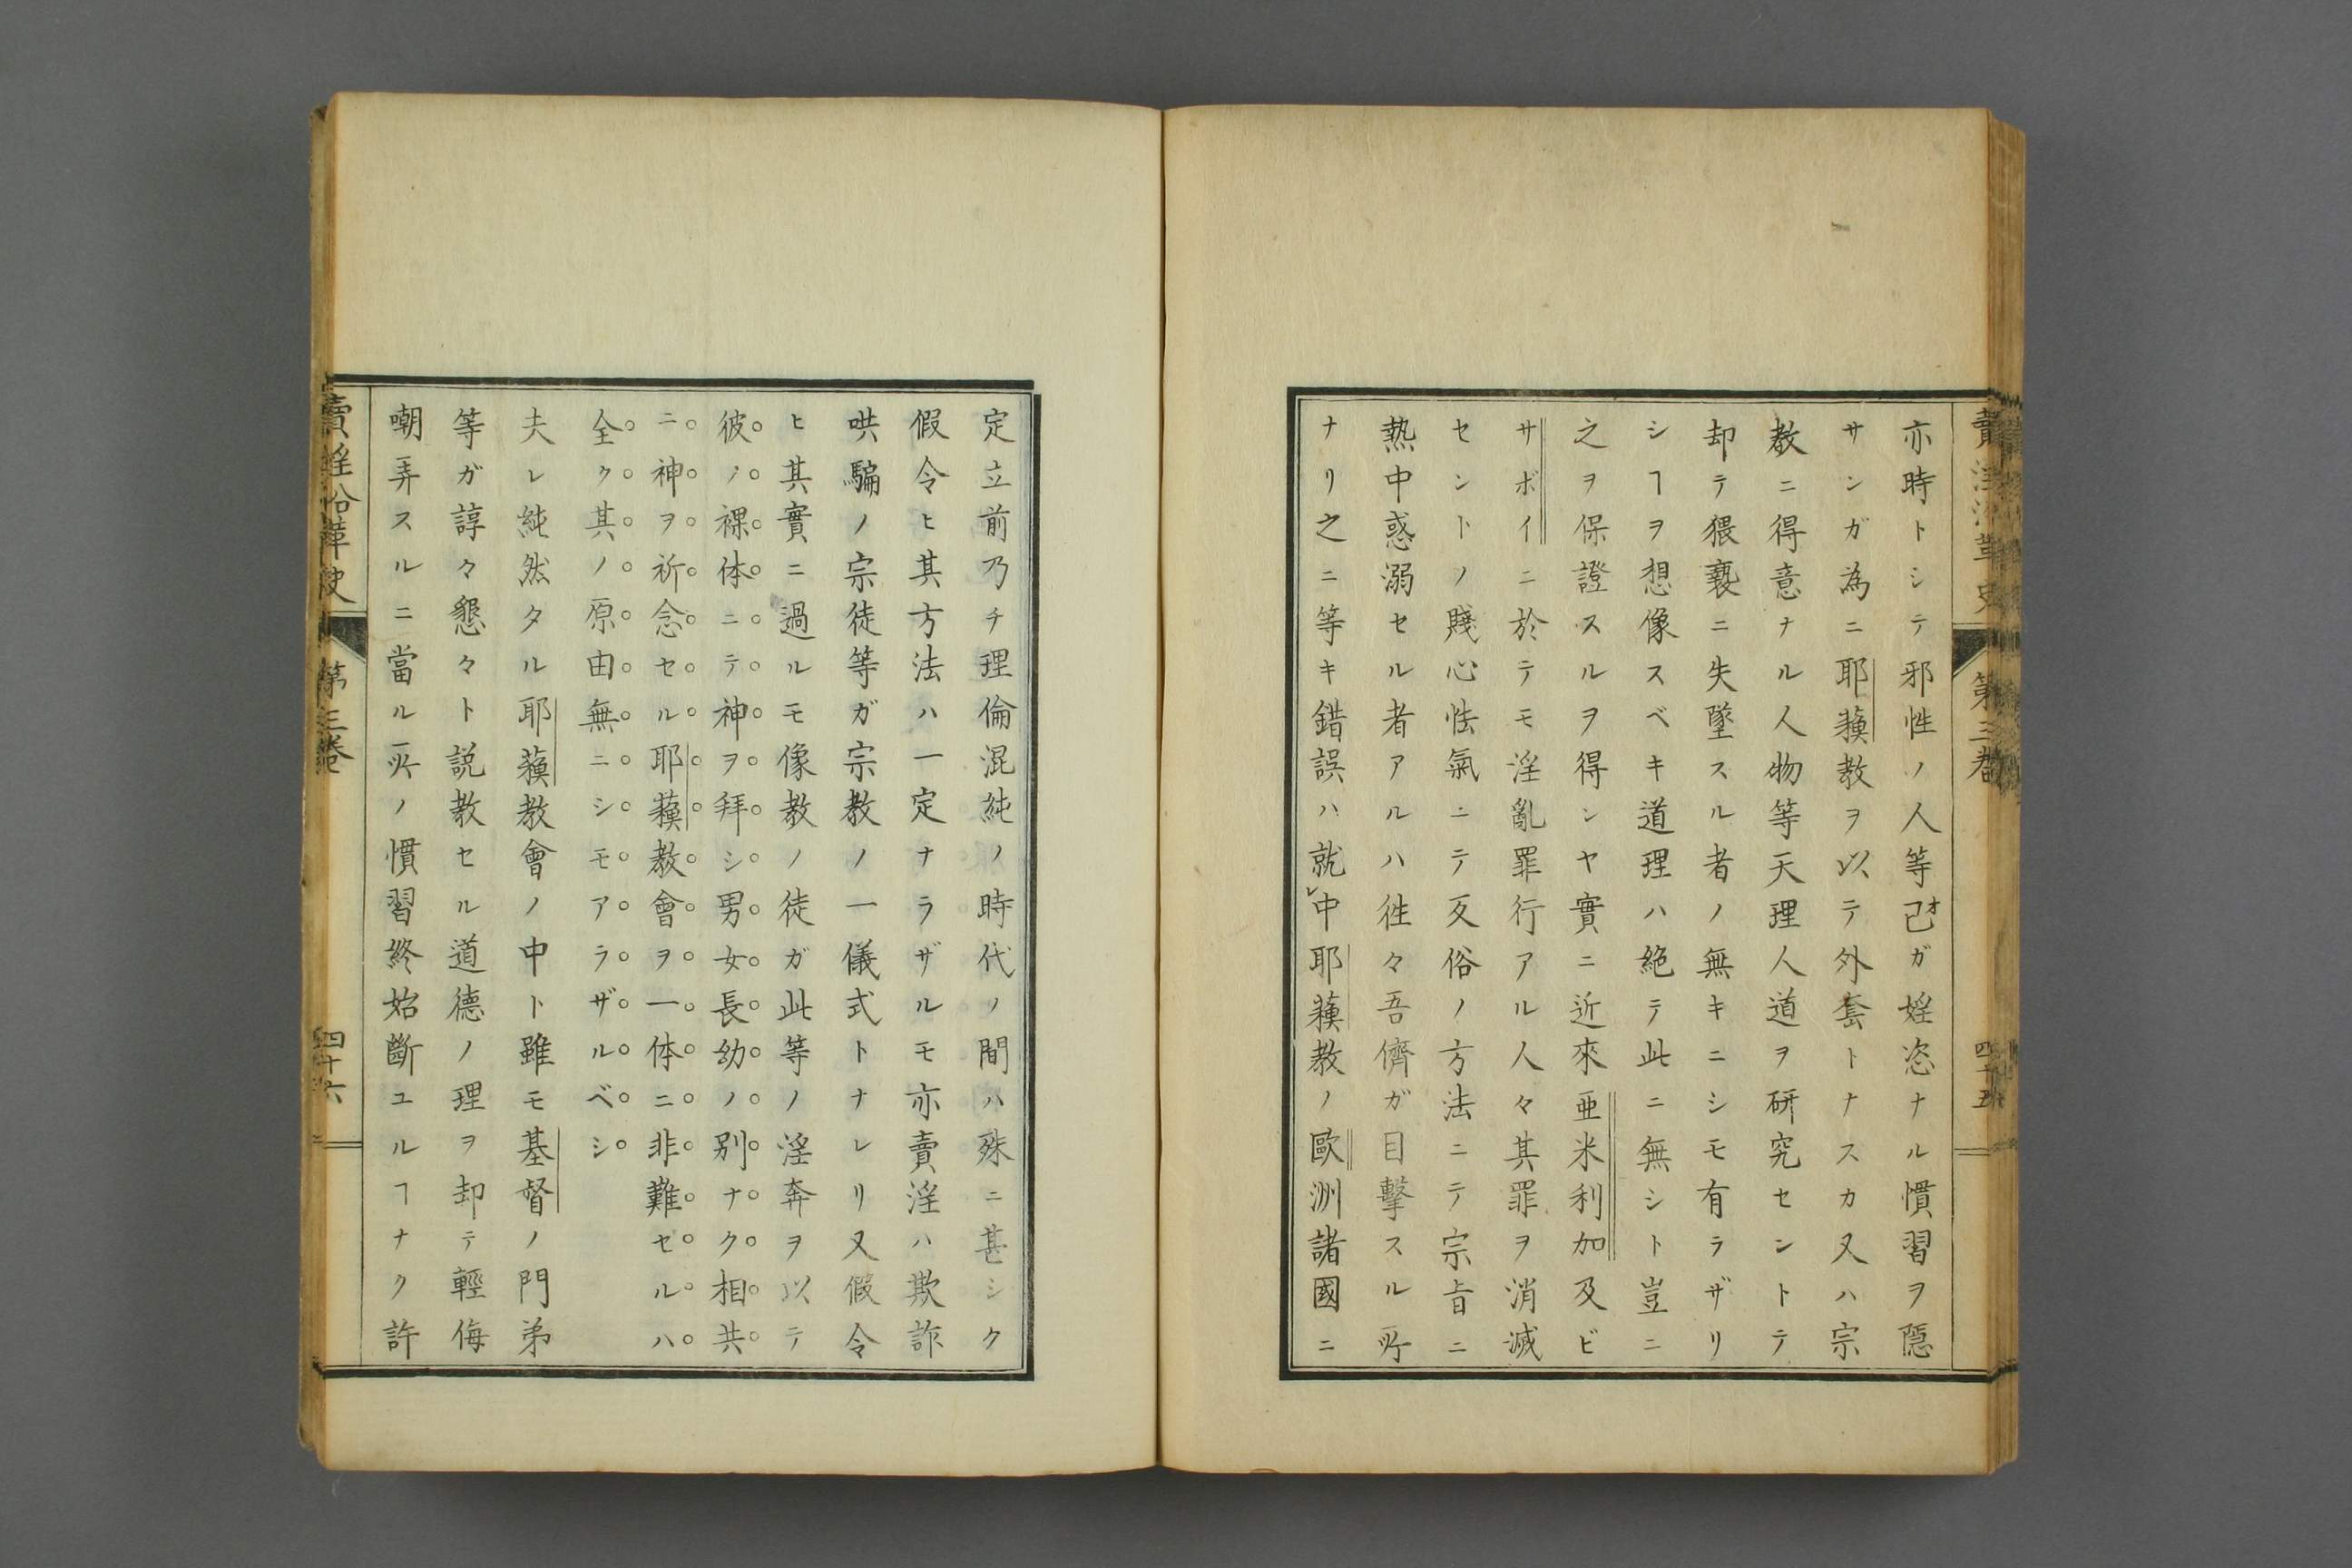 賣淫沿革史
第三卷
四十五
亦時トシテ邪性ノ人等己オガ婬恣ナル慣習ヲ隱
サンガ為ニ耶蘓教ヲ以テ外套トナスカ又ハ宗
教ニ得意ナル人物等天理人道ヲ研究セントテ
却テ猥褻ニ失墜スル者ノ無キニシモ有ラザリ
シヿヲ想像スベキ道理ハ絶テ此ニ無シト豈ニ
之ヲ保證スルヲ得ンヤ實ニ近來亜米利加及ビ
サボイニ於テモ淫亂罪行アル人々其罪ヲ消滅
セントノ賤心怯氣ニテ反俗ノ方法ニテ宗旨ニ
熱中惑溺セル者アルハ徃々吾儕ガ目擊スル所
ナリ之ニ等キ錯誤ハ就レ中耶蘓教ノ歐洲諸國ニ
定立前乃チ理倫混純ノ時代ノ間ハ殊ニ甚シク
假令ヒ其方法ハ一定ナラザルモ亦賣淫ハ欺詐
哄騙ノ宗徒等ガ宗教ノ一儀式トナレリ又假令
ヒ其實ニ過ルモ像教ノ徒ガ此等ノ淫奔ヲ以テ
彼ノ裸体ニテ神ヲ拜シ男女長幼ノ別ナク相共
ニ神ヲ祈念セル耶蘓教會ヲ一体ニ非難セルハ
全ク其ノ原由無ニシモアラザルベシ
夫レ純然タル耶蘓教會ノ中ト雖モ基督ノ門弟
等ガ諄々懇々ト説教セル道德ノ理ヲ却テ輕侮
嘲弄スルニ當ル所ノ慣習終始斷ユルヿナク許
賣婬沿革史
第三卷
四十六